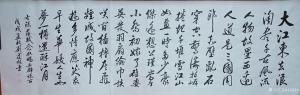 大江東去浪
淘盡千古風流
人物故壘西邊
人道是三國周
郎赤壁亂石
穿空驚濤拍岸
捲起千堆雪江山
如畫一時多少豪
傑遙想公瑾當年
小喬初嫁了雄姿
英發羽扇綸巾談
笑間檣櫓灰飛
煙滅故國神
遊多情應笑我
早生華髮人生如
夢一尊還酹江月